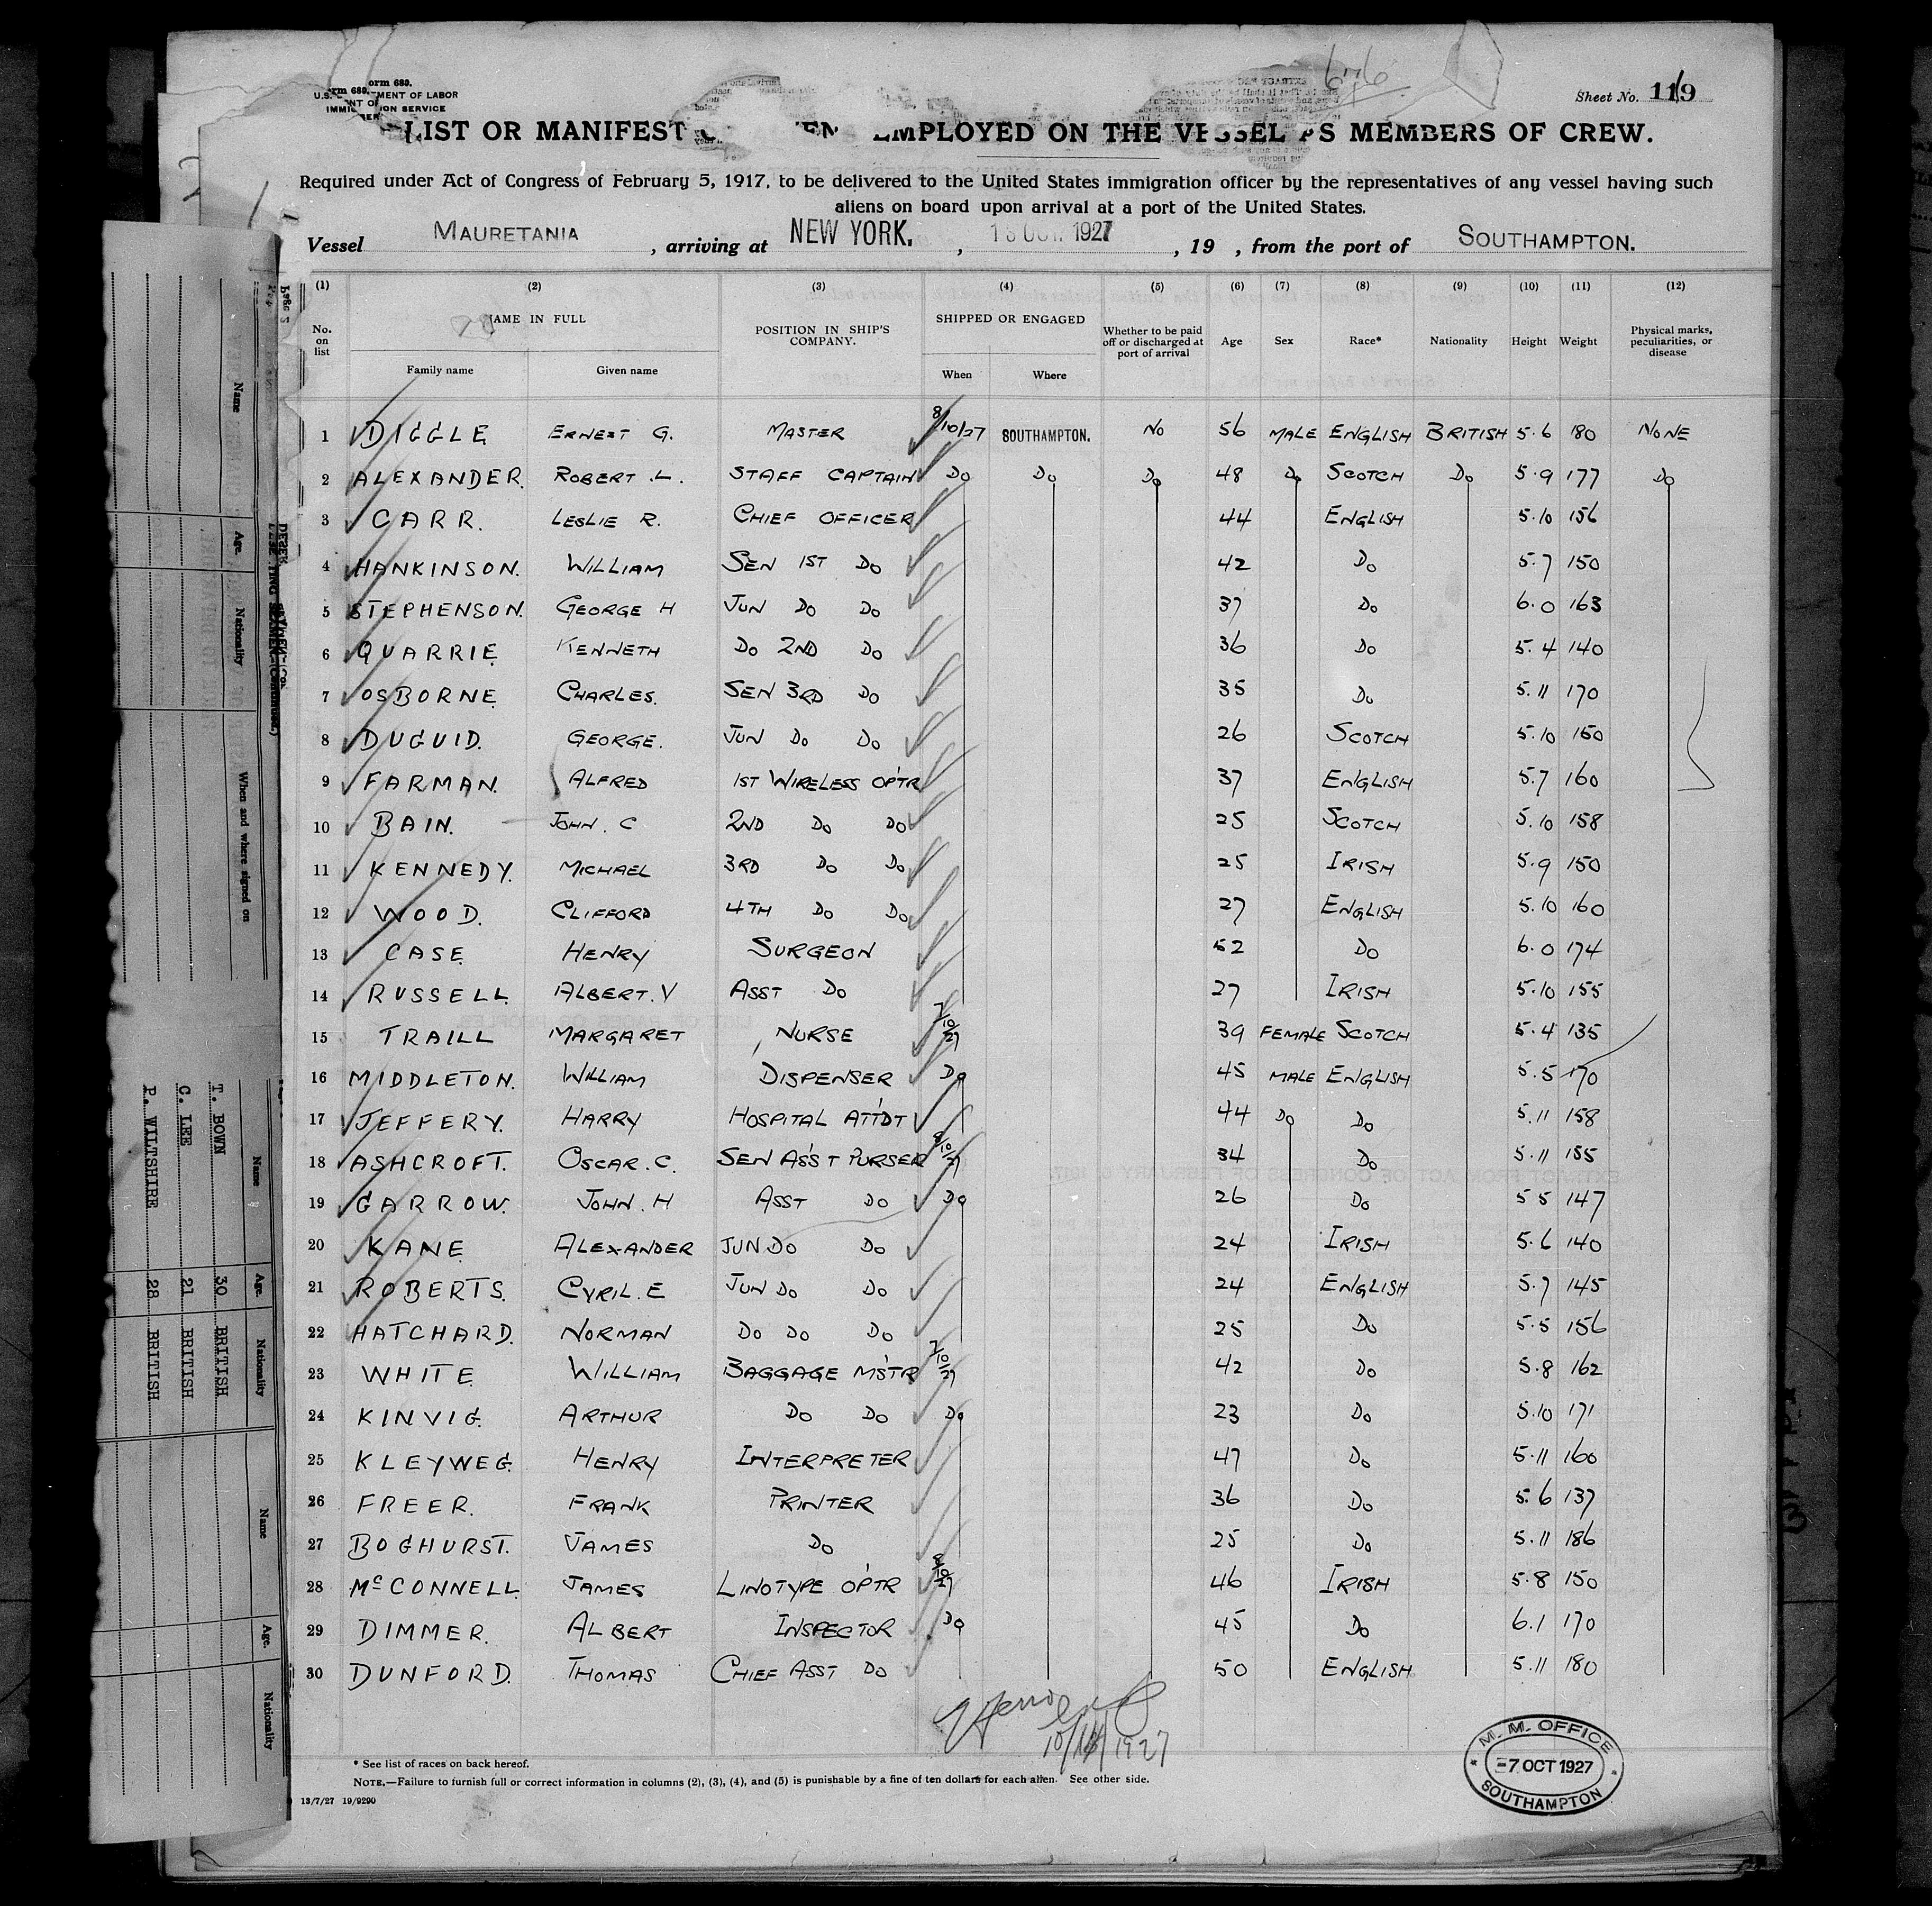 orm 689.
rm 689.
U.S. MENT OF LABOR
NT OF
IMMI ION SERVICE
Sheet No. 119
LIST OR MANIFEST EMPLOYED ON THE VESSEL AS MEMBERS OF CREW.
Required under Act of Congress of February 5, 1917, to be delivered to the United States immigration officer by the representatives of any vessel having such
aliens on board upon arrival at a port of the United States.
Vessel MAURETANIA, arriving at NEW YORK., OCT. 1927, 19 , from the port of SOUTHAMPTON.
(1) (2) (3) (4) (5) (6) (7) (8) (9) (10) (11) (12)
No. on list NAME IN FULL Family name Given name POSITION IN SHIP'S COMPANY. SHIPPED OR ENGAGED When Where Whether to be paid off or discharged at port of arrival Age Sex Race* Nationality Height Weight Physical marks, peculiarities, or disease
1 DIGGLE ERNEST G. MASTER 8/10/27 SOUTHAMPTON. NO 56 MALE ENGLISH BRITISH 5.6 180 NONE
2 ALEXANDER. ROBERT .L. STAFF CAPTAIN DO DO DO 48 DO SCOTCH DO 5.9 177 DO
3 CARR. LESLIE R. CHIEF OFFICER 44 ENGLISH 5.10 156
4 HANKINSON. WILLIAM SEN 1ST DO 42 DO 5.7 150
5 STEPHENSON. GEORGE H JUN DO DO 37 DO 6.0 163
6 QUARRIE KENNETH DO 2ND DO 36 DO 5.4 140
7 OSBORNE CHARLES. SEN 3RD DO 35 DO 5.11 170
8 DUGUID. GEORGE. JUN DO DO 26 SCOTCH 5.10 150
9 FARMAN. ALFRED 1ST WIRELESS OP'TR 37 ENGLISH 5.7 160
10 BAIN. JOHN. C 2ND DO DO 25 SCOTCH 5.10 158
11 KENNEDY. MICHAEL 3RD DO DO 25 IRISH 5.9 150
12 WOOD. CLIFFORD 4TH DO DO 27 ENGLISH 5.10 160
13 CASE HENRY SURGEON 52 DO 6.0 174
14 RUSSELL ALBERT. V ASST DO 27 IRISH 5.10 155
15 TRAILL MARGARET NURSE 7/10/27 39 FEMALE SCOTCH 5.4 135
16 MIDDLETON. WILLIAM DISPENSER DO 45 MALE ENGLISH 5.5 170
17 JEFFERY. HARRY HOSPITAL ATT'DT 44 DO DO 5.11 158
18 ASHCROFT. OSCAR. C. SEN ASS'T PURSER 8/10/27 34 DO 5.11 155
19 GARROW. JOHN. H ASST DO DO 26 DO 5 5 147
20 KANE ALEXANDER JUN DO DO 24 IRISH 5.6 140
21 ROBERTS. CYRIL. E JUN DO DO 24 ENGLISH 5.7 145
22 HATCHARD. NORMAN DO DO DO 25 DO 5.5 156
23 WHITE WILLIAM BAGGAGE M'STR 7/10/27 42 DO 5.8 162
24 KINVIG. ARTHUR DO DO DO 23 DO 5.10 171
25 KLEYWEG. HENRY INTERPRETER 47 DO 5.11 160
26 FREER. FRANK PRINTER 36 DO 5.6 137
27 BOGHURST. JAMES DO 25 DO 5.11 186
28 McCONNELL JAMES LINOTYPE OP'TR 8/10/27 46 IRISH 5.8 150
29 DIMMER. ALBERT INSPECTOR DO 45 DO 6.1 170
30 DUNFORD. THOMAS CHIEF ASST DO 50 ENGLISH 5.11 180
* See list of races on back hereof.
NOTE.—Failure to furnish full or correct information in columns (2), (3), (4), and (5) is punishable by a fine of ten dollars for each alien. See other side.
13/7/27 19/9290
M. M. OFFICE
-7 OCT 1927
SOUTHAMPTON
Name Age. Nationality When and where signed on
Name Age. Nationality Name Age. Nationality
T. BOWN 30 BRITISH
C. LEE 21 BRITISH
P. WILTSHIRE 28 BRITISH